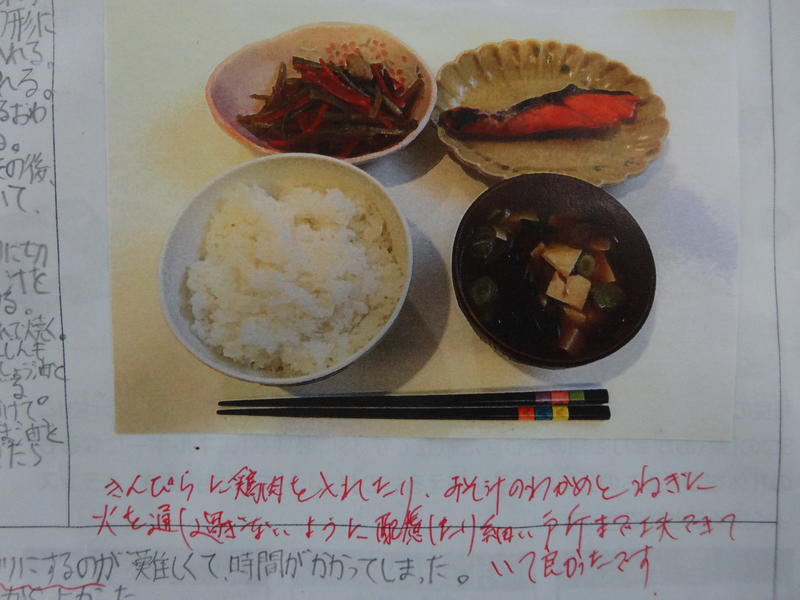 形に
れる。
れる。
るおわ
る。
その後、
いて、
に切
けを
する。
れて焼く。
しんも
ごま油と
きんぴらに鶏肉を入れたり、おみそ汁のわかめとねぎに
火を通し過ぎないように配慮したり細い所まで工夫できて
いて良かったです
ツリにするのが難しくて、時間がかかってしまった。